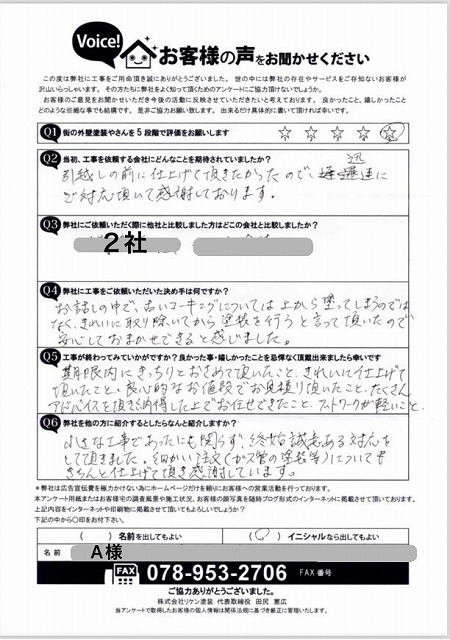 Voice!
お客様の声をお聞かせください
この度は弊社に工事をご用命頂き誠にありがとうございました。世の中には弊社の存在やサービスをご存知ないお客様が
沢山いらっしゃいます。その方たちに弊社をよく知って頂くためのアンケートにご協力頂けないでしょうか。
お客様のご意見をお聞かせいただき今後の活動に反映させていただきたいと考えております。良かったこと、嬉しかったこと
どのような些細な事でも結構です。是非ご協力お願い致します。出来るだけ具体的に書いて頂ければ幸いです。
Q1 街の外壁塗装やさんを5段階で評価をお願いします ☆ ☆ ☆ ☆ ☆
Q2 当初、工事を依頼する会社にどんなことを期待されていましたか?
引越しの前に仕上げて頂きたかったので、迅速に
ご対応頂いて感謝しております。
Q3 弊社にご依頼いただく際に他社と比較しました方はどこの会社と比較しましたか?
2社
Q4 弊社に工事をご依頼いただいた決め手は何ですか?
お話しの中で、古いコーキングについては上から塗ってしまうのでは
なく、きれいに取り除いてから塗装を行うと言って頂いたので
安心しておまかせできると感じました。
Q5 工事が終わってみていかがですか?良かった事・嬉しかったことを忌憚なく頂戴出来ましたら幸いです
期限内にきっちりとおさめて頂いたこと、きれいに仕上げて
頂いたこと、良心的なお値段でお見積り頂いたこと、たくさん
アドバイスを頂き納得した上でお任せできたこと、フットワークが軽いこと。
Q6 弊社を他の方に紹介するとしたらなんと紹介しますか?
小さな工事であったにも関らず、終始誠意ある対応を
して頂きました。細かい注文(ガス管の塗装等)についても
きちんと仕上げて頂き感謝しています。
*弊社は広告宣伝費を極力かけない為にホームページだけを頼りにお客様への営業活動を行っております。
本アンケート用紙またはお客様宅の調査風景や施工状況、お客様の顔写真を随時ブログ形式のインターネットに掲載させて頂いております。
上記内容をインターネットや印刷物に掲載させて頂いてもよろしいでしょうか?
下記の中から〇印をお付下さい。
( ) 名前を出してもよい ( 〇 ) イニシャルなら出してもよい
名前 A様
FAX 078-953-2706 FAX番号
ご協力ありがとうございました。
株式会社リケン塗装 代表取締役 田尻 憲広
当アンケートで取得したお客様の個人情報は関係法規に基づき厳正に管理いたします。